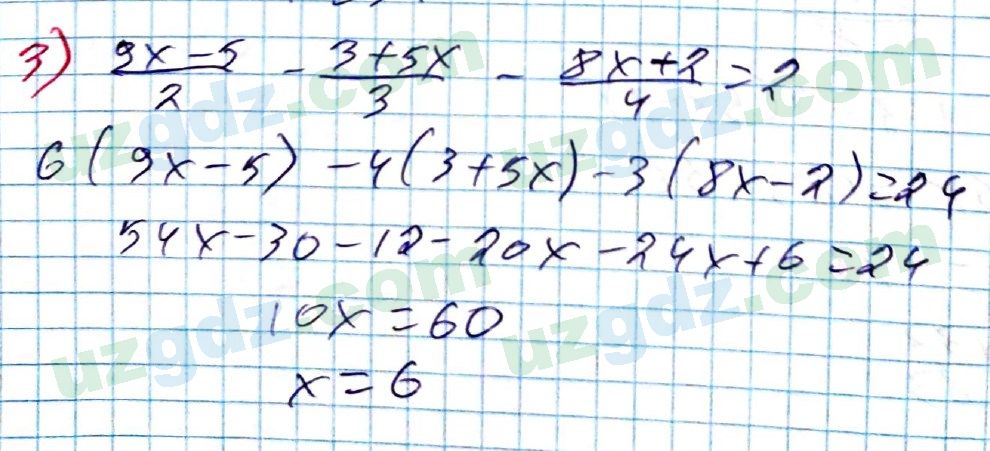 3) 9x-5/2 - 3+5x/3 - 8x+2/4 = 2
6(9x-5)-4(3+5x)-3(8x-2)=24
54x-30-12-20x-24x+6=24
10x=60
x=6
uzgdz.com
uzgdz.com
uzgdz.com
uzgdz.com
uzgdz.com
uzgdz.com